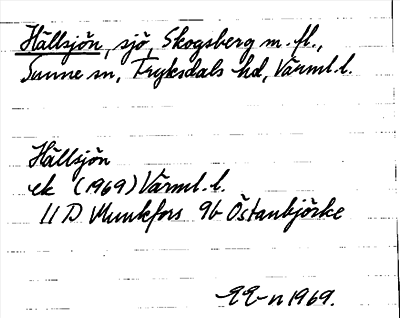 Hällsjön, sjö, Skogsberg m. fl.,
Sunne sn, Fryksdals hd, Värml. l.
Hällsjön
ek (1969) Värml. l.
11 D Munkfors 9b Östanbjörke
1969.